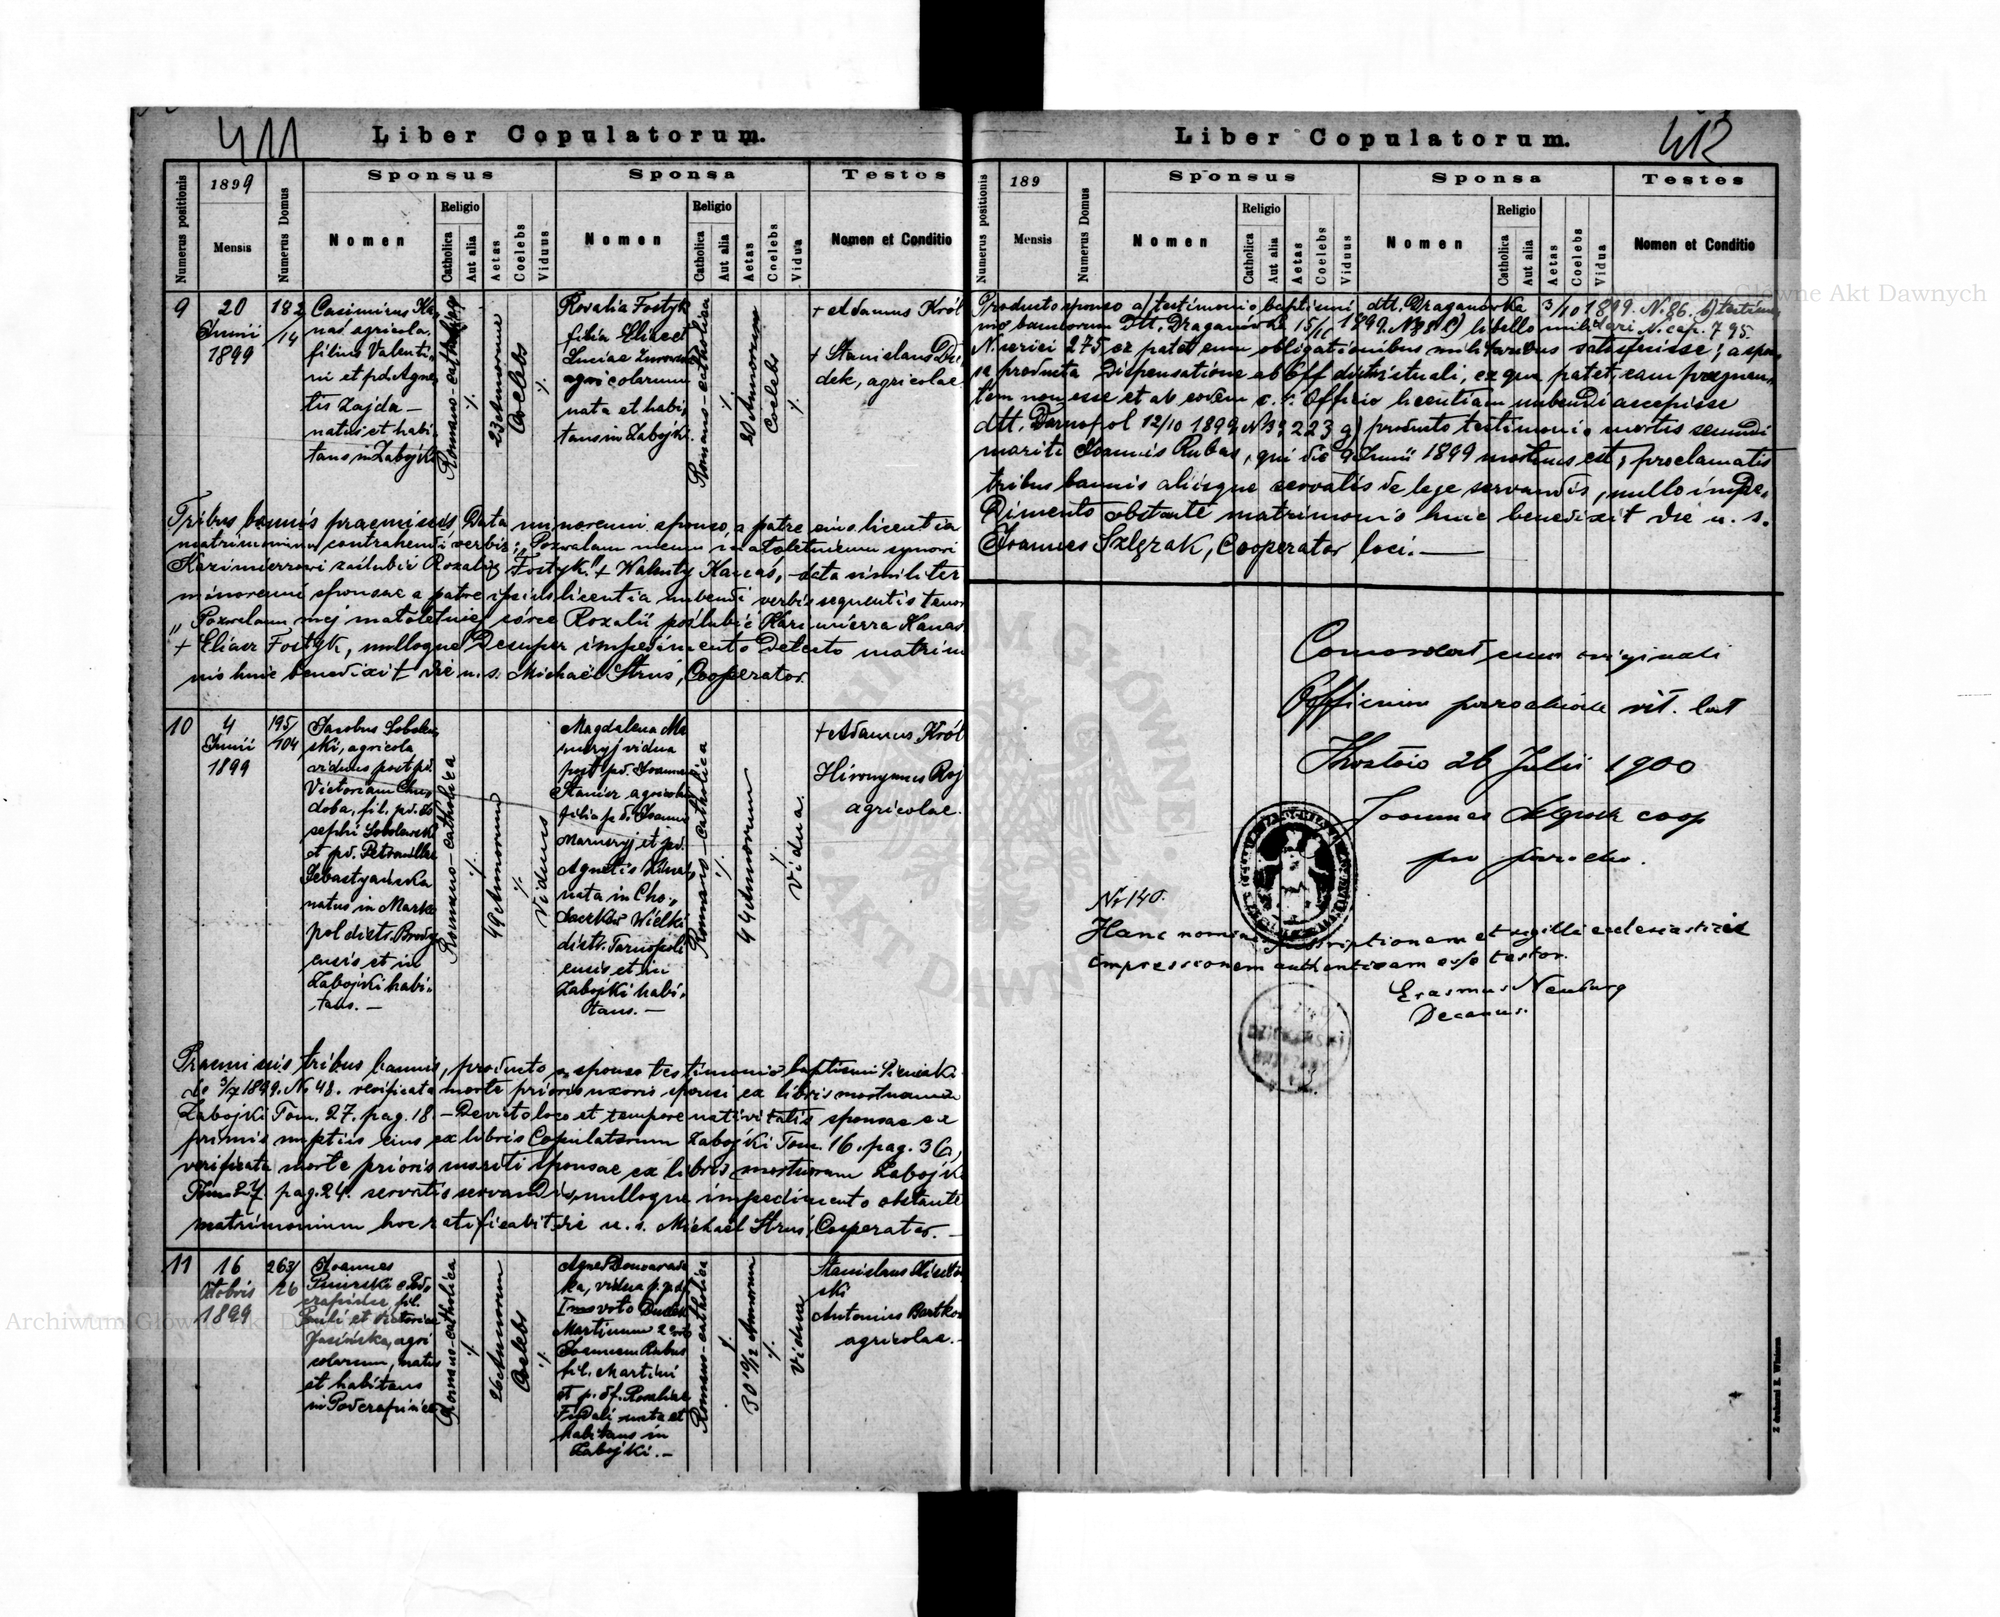 411
Liber Copulatorum.
1899
Sponsus
Sponsa
Testes
Numerus positionis
Mensis
Numerus Domus
Nomen
Religio
Catholica
Aut alia
Aetas
Coelebs
Viduus
Nomen
Religio
Catholica
Aut alia
Aetas
Coelebs
Vidua
Nomen et Conditio
9
20
Junii
1899
182
/14
Casimirus Ka
nas agricola,
filius Valenti,
ni et pd. Agne
tis Zajda —
natus et habi
tans in Zabojki
Romano-catholica
./.
23 Annorum
Coelebs
./.
Rosalia Fostyk
filia Eliae et
Luciae
agricolarum
nata et habi,
tans in Zabojki.
Romano-catholica
./.
20 Annorum
Coelebs
./.
+ Adamus Król
+ Stanislaus Du
dek, agricolae.
Tribus bannis praemissis Data minorenni sponso a patre eius licentia
matrimonium contrahendi verbis: "Pozwalam memu małoletniemu synowi
Kazimierzowi zaślubić Rozalię Fostyk." + Walenty Kanas, — data similiter
minorenni sponsae a patre ipsius licentia nubendi verbis sequentis tenor
"Pozwalam mej małoletniej córce Rozalii poślubić Kazimierza Kanas
+ Eliasz Fostyk, nulloque Desuper impedimento Detecto matrim
nio huic benedixit die u. s. Michaël Struś, Cooperator.
10
4
Junii
1899
195/
104
Jacobus Sobolew
ski, agricola
viduus post pd.
Victoriam Chu
doba, fil. pd. Jo
sephi Sobolewski
et pd. Petronillae
Sebastyańska
natus in Marko
pol distr. Brody
ensis et in
Zabojki habi,
tans. —
Romano-catholica
./.
49 Annorum
./.
Viduus
Magdalena Ma
meryj vidua
post pd. Joanne
agricola
filia pd. Joannis
Mameryj et pd.
Agnetis
nata in Cho,
daczków Wielki
distr. Tarnopoli
ensis et in
Zabojki habi,
tans. —
Romano-catholica
./.
44 Annorum
./.
Vidua.
+ Adamus Król
Hieronymus Roj
agricolae.
Praemissis tribus bannis, producto a sponso testimonio baptismi
do 3/7 1899. No 48. verificata morte prioris uxoris sponsi ex libris mortuorum
Zabojki Tom. 27. pag. 18 — De victo loco et tempore nativitatis sponsae ex
primis nuptiis eius ex libris Copulatorum Zabojki Tom. 16. pag. 36,
verificata morte prioris mariti sponsae ex libris mortuorum Zabojki
Tom 27 pag. 24. servatis servandis, nulloque impedimento obstante
matrimonium hoc ratificabit die u. s. Michaël Struś, Cooperator. —
11
16
Octobris
1899
263/
26
Joannes
fil.
Pauli et Victoriae
Jasińska, agri
colarum, natus
et habitans
in
Romano-catholica
./.
26 Annorum
Coelebs
./.
Agnes
ka, vidua p. pd.
Imo voto Dudek
Martinum 2 voto
Joannem Rubas
fil. Martini
et p. df. Rosaliae
Fidali nata et
habitans in
Zabojki. —
Romano-catholica
./.
30 9/12 Annorum
./.
Vidua
Stanislaus
ski
Antonius Bartko
agricolae. —
412
Liber Copulatorum.
189
Sponsus
Sponsa
Testes
Numerus positionis
Mensis
Numerus Domus
Nomen
Religio
Catholica
Aut alia
Aetas
Coelebs
Viduus
Nomen
Religio
Catholica
Aut alia
Aetas
Coelebs
Vidua
Nomen et Conditio
Producto sponso a) testimonio baptismi dtt. Draganówka 3/10 1899. N. 86. b) testimo
nio bannorum dtt. Draganówka 15/10 1899. N 88 c) libello militari N. cap. 795.
N. seriei 275 ex patet eum obligationibus militaribus satisfuisse; a spon
sa producta Dispensatione ab Off districtuali, ex qua patet, eam praegnan,
tem non esse et ab eodem c. r. Officio licentiam nubendi accepisse
dtt. Tarnopol 12/10 1899 N 31223 g) producto testimonio mortis secundi
mariti Joannis Rubas, qui die 9 Junii 1899 mortuus est; proclamatis
tribus bannis aliisque servatis de lege servandis, nullo impe,
Dimento obstante matrimonio huic benedixit die u. s.
Joannes Szlęzak, Cooperator loci. —
Concordat cum originali
Officium parochiale rit. lat
26 Julii 1900
Joannes Szlęzak coop
pro parocho.
Nr 140.
Hanc nominis subscriptionem et sigilli ecclesiastici
impressionem authenticam esse testor.
Erasmus Neuburg
Decanus.
Archiwum Główne Akt Dawnych
Archiwum Główne Akt Dawnych